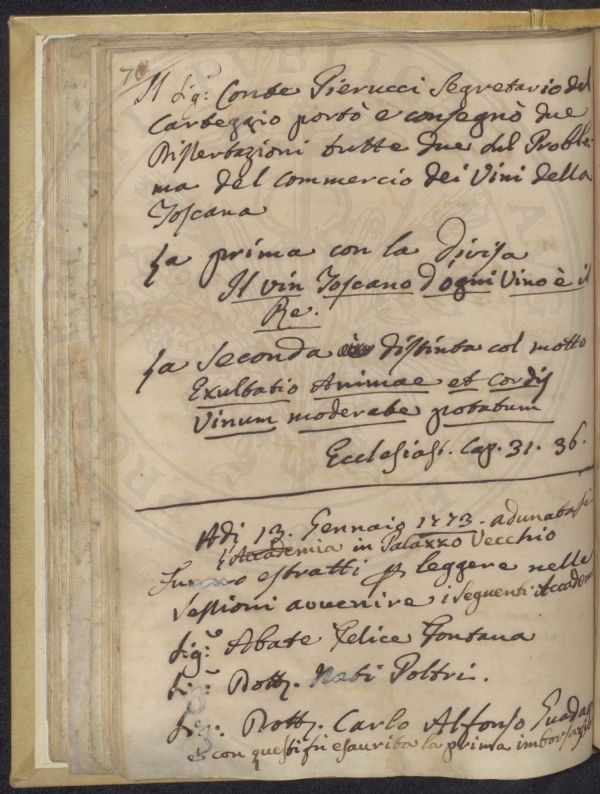 70
Il Sig.r Conte Pierucci Segretario del
Carteggio portò e consegnò due
Dissertazioni tutte due del Proble-
ma del Commercio dei Vini della
Toscana
La prima con la Divisa
Il vin Toscano d'ogni Vino è il
Re.
La Seconda è distinta col motto
Exultatio Animae et Cordis
Vinum moderate potatum
Ecclesiast. Cap. 31. 36.
Adi 13. Gennaio 1773. adunatasi
l'Accademia in Palazzo Vecchio
furono estratti p leggere nelle
Sessioni avvenire i seguenti Accadem
Sig.r Abate Felice Fontana
Sig.r Dott. Nati Poltri.
Sig.r Dott. Carlo Alfonso Guadag
e con questi fu esaurita la prima imborsazio